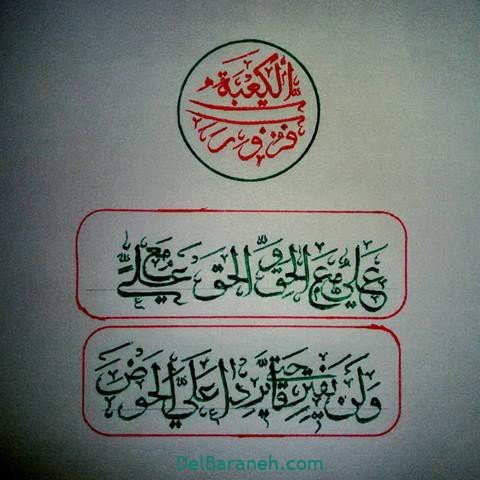 فزت و رب الكعبة
علي مع الحق و الحق مع علي
ولن يفترقا حتى يردا علي الحوض
DelBaraneh.com